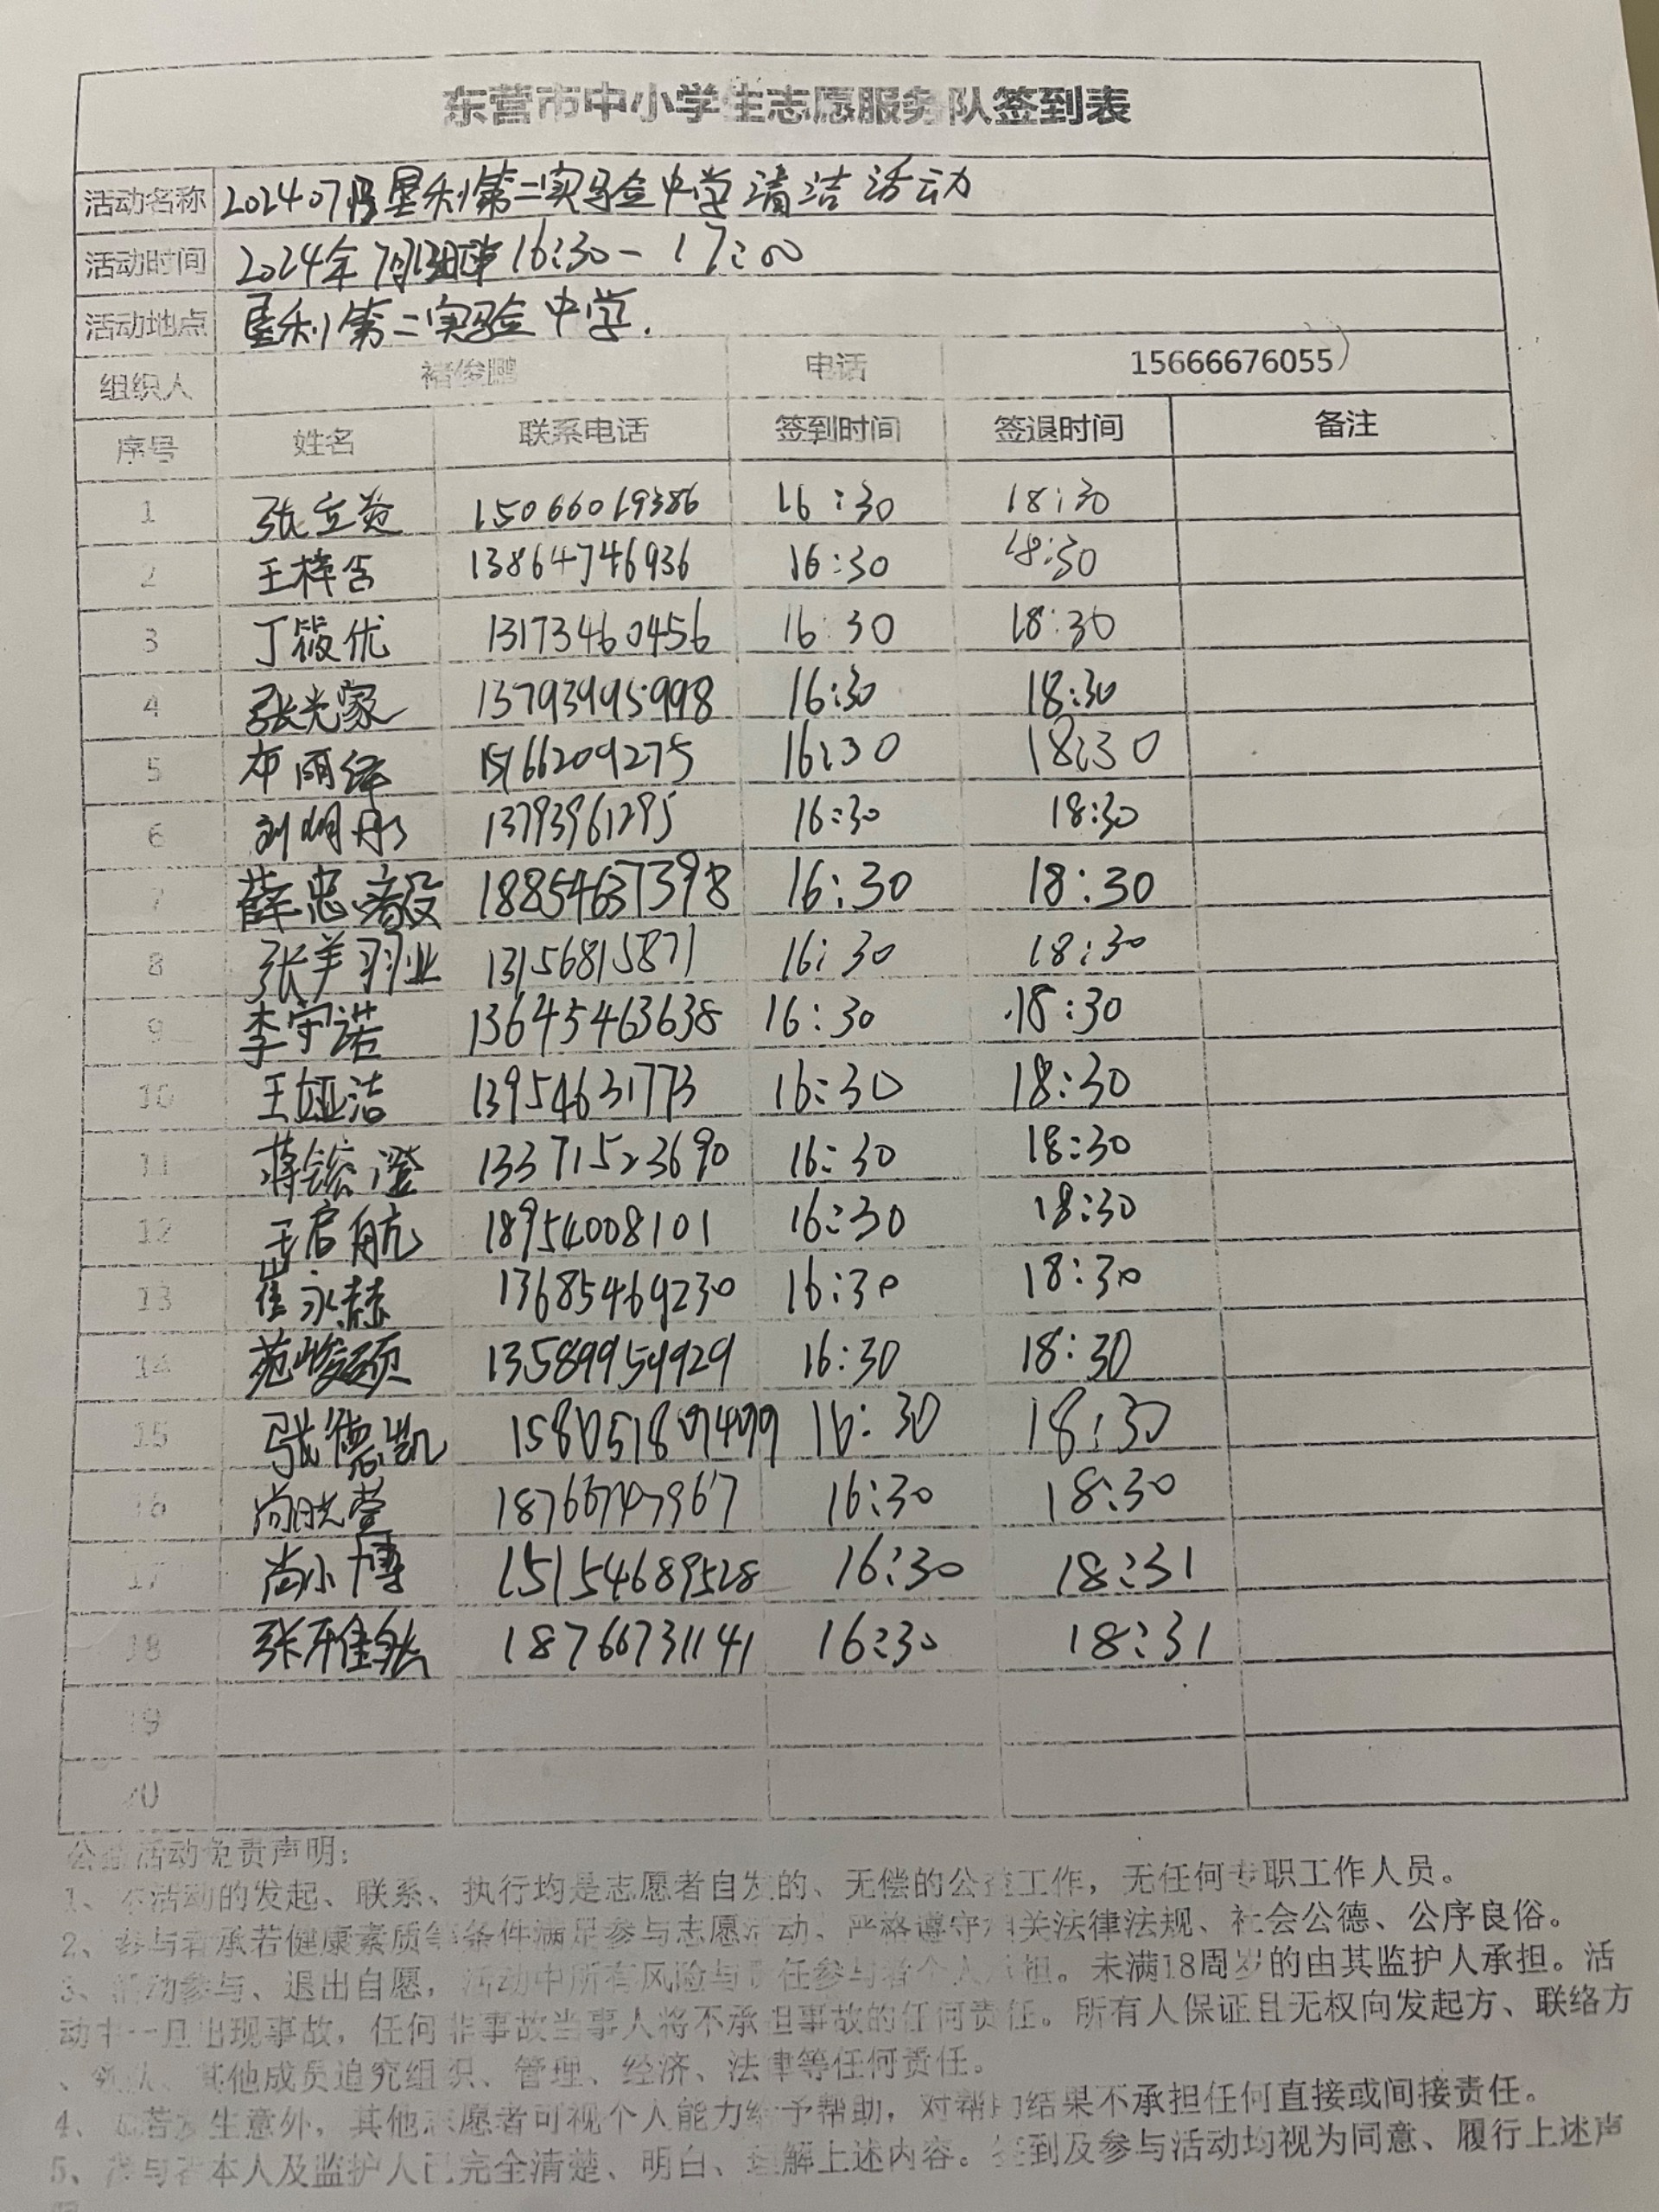 东营市中小学生志愿服务队签到表
活动名称 202407 垦利第二实验中学清洁活动
活动时间 2024年7月13日 16:30-17:00
活动地点 垦利第二实验中学.
组织人 褚俊鹏 电话 15666676055
序号 姓名 联系电话 签到时间 签退时间 备注
1 张立 15066019386 16:30 18:30
2 王梓含 13864746936 16:30 18:30
3 丁筱优 13173460456 16:30 18:30
4 张光家 13793995998 16:30 18:30
5 布丽绎 15166209275 16:30 18:30
6 刘明彤 13793961295 16:30 18:30
7 薛忠毅 18854637398 16:30 18:30
8 张羊羽业 13156815871 16:30 18:30
9 李守诺 13645463638 16:30 18:30
10 王娅洁 13954631773 16:30 18:30
11 蒋鋐澄 13371523690 16:30 18:30
12 王启航 18954008101 16:30 18:30
13 崔永赫 13685469230 16:30 18:30
14 苑峻硕 13589959929 16:30 18:30
15 张德凯 16:30 18:30
16 尚晄萱 18766747967 16:30 18:30
17 尚小博 15154689528 16:30 18:31
18 张 18766731141 16:30 18:31
19
20
公益活动免责声明:
1、本活动的发起、联系、执行均是志愿者自发的、无偿的公益工作，无任何专职工作人员。
2、参与者承若健康素质等条件满足参与志愿活动，严格遵守相关法律法规、社会公德、公序良俗。
3、活动参与、退出自愿，活动中所有风险与责任参与者个人承担。未满18周岁的由其监护人承担。活
动中一旦出现事故，任何非事故当事人将不承担事故的任何责任。所有人保证且无权向发起方、联络方
、领队、其他成员追究组织、管理、经济、法律等任何责任。
4、如若发生意外，其他志愿者可视个人能力给予帮助，对帮助结果不承担任何直接或间接责任。
5、参与者本人及监护人已完全清楚、明白、理解上述内容。签到及参与活动均视为同意、履行上述声